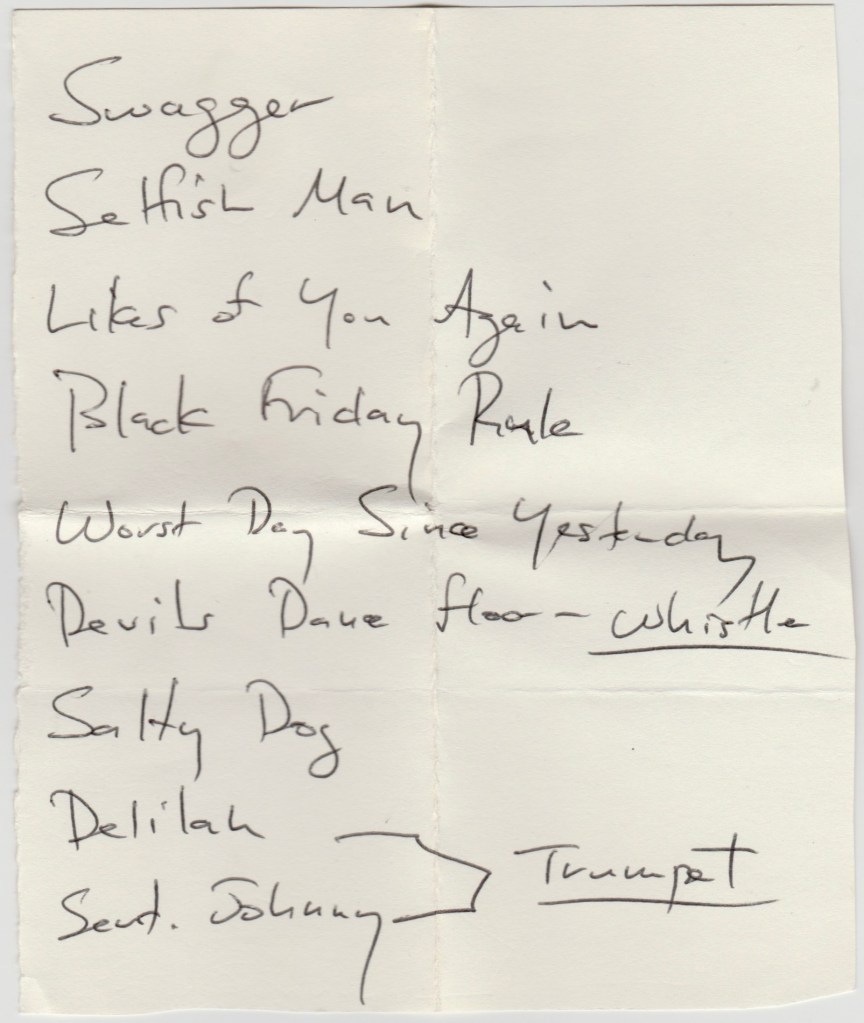 Swagger
Selfish Man
Likes of You Again
Black Friday Rule
Worst Day Since Yesterday
Devils Dance floor - Whistle
Salty Dog
Delilah
Trumpet
Sent. Johnny